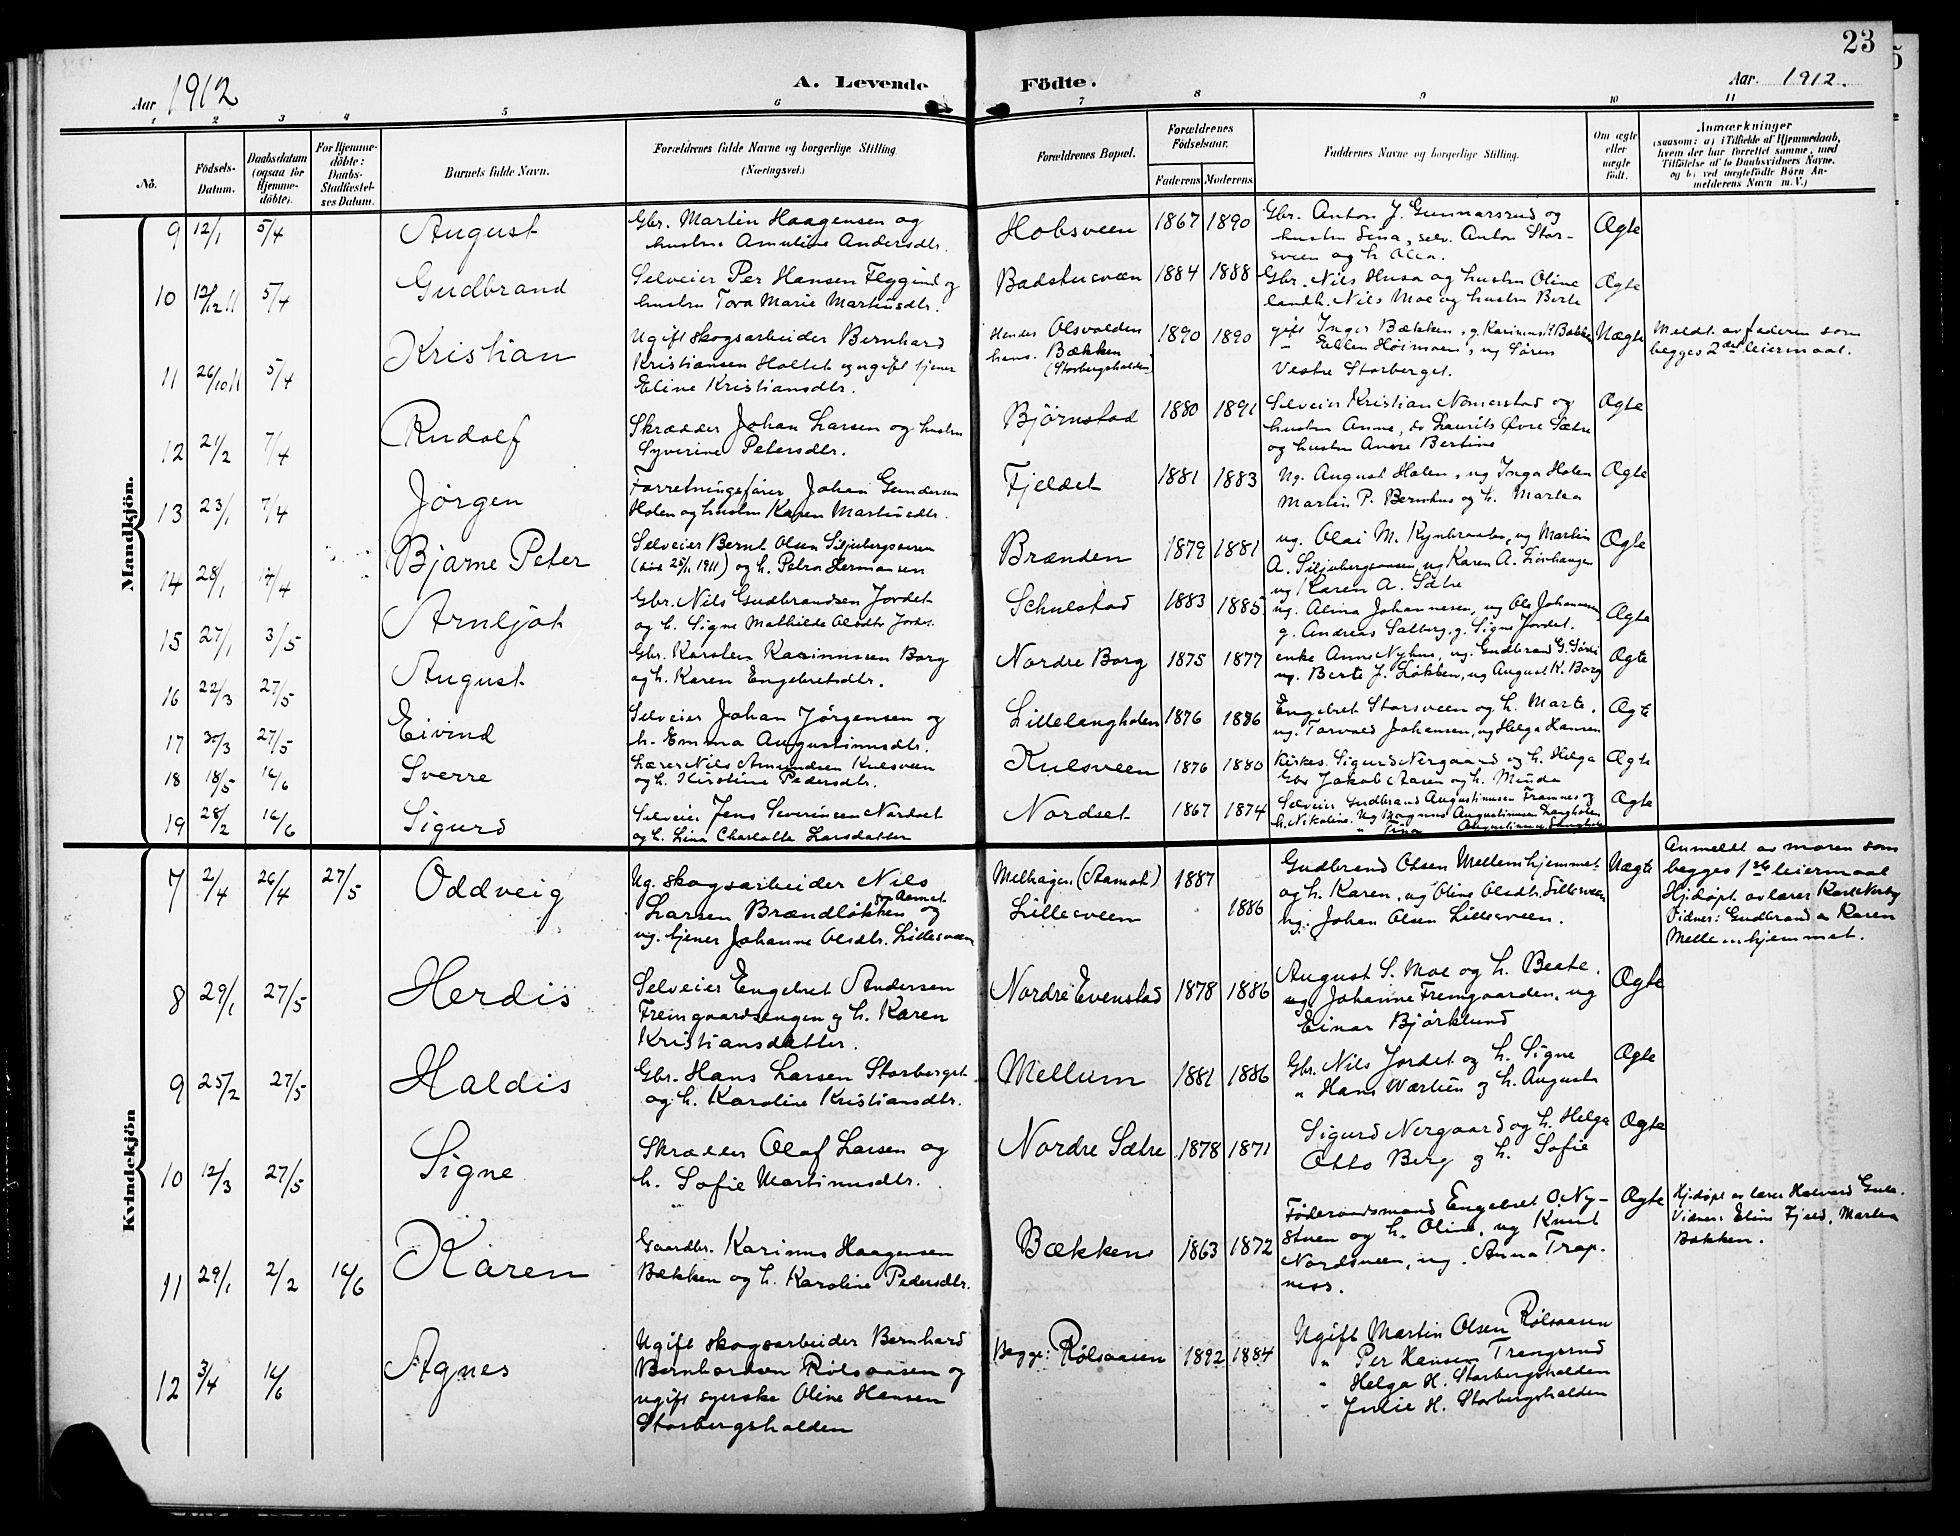 23
Aar 1912
A. Levende Födte.
Aar. 1912.
1 2 3 4 5 6 7 8 9 10 11
No.
Födsels-
Datum.
Daabsdatum
(ogsaa for
Hjemme-
döbte).
For Hjemme-
döbte:
Daabs-
Stadfæstel-
ses Datum.
Barnets fulde Navn.
Forældrenes fulde Navne og borgerlige Stilling
(Næringsvei.)
Forældrenes Bopæl.
Forældrenes
Födselsaar.
Faderens. Moderens.
Faddernes Navne og borgerlige Stilling.
Om ægte
eller
uægte
födt.
Anmærkninger
(saasom: a) i Tilfælde af Hjemmedaab,
hvem der har forrettet samme, med
Tilföielse af to Daabsvidners Navne,
og b) ved uægtefödte Börn An-
melderens Navn m. V.)
Mandkjön.
9 12/1 5/4 August
Gbr. Martin Haagensen og
hustru Amutine Andersdtr.
Hobsveen 1867 1890
Gbr. Anton J. Gunnarsrud og
hustru Lina, selv. Anton Stor-
sveen og h.
Ægte
10 12/12.11 5/4 Gudbrand
Selveier Per Hansen Flygind og
hustru Tora Marie Martinsdtr.
Badstusveen 1884 1888
Gbr. Nils Husa og hustru Oline
landh. Nils Moe og hustru Berte
Ægte
11 26/10 11 5/4 Kristian
Ugift skogsarbeider Bernhard
Kristiansen Holtet og ugift tjener
Eline Kristiansdtr.
Hendes Olsvolden
hans. Bækken
(Storbergshalden)
1890 1890
gift Inger Bækken, g. Karinus Bækken
" Ellen Høimoen, ug Søren
Vestre Storberget.
Uægte
Meldt av faderen som
begges 2det leiermaal.
12 21/2 7/4 Rudolf
Skrædder Johan Larsen og hustru
Syverine Petersdtr.
Bjørnstad 1880 1891
Selveier Kristian Nomerstad og
hustru Anne, do Laurits Øvre Sætre
og hustru Andre Bertine
Ægte
13 23/1 7/4 Jørgen
Forretningsfører Johan Gundersen
Holen og hustru Karen Martinsdtr.
Fjeldet 1881 1883
Ug. August Holen, ug Inga Holen
Martin P. Bernhus og h. Martea
Ægte
14 28/1 14/4 Bjarne Peter
Selveier Bernt Olsen Siljubergsveen
(død 25/11 1911) og h. Petra Hermansen
Brænden 1879 1881
ug. Olai M. Kynbraaten, ug Martin
A. Siljubergsveen, ug Karen A. Løvhaugen
ug Karen A. Sætre
Ægte
15 27/1 3/5 Arnljot
Gbr. Nils Gudbrandsen Jordet
og h. Signe Mathilde Olsdtr Jordet.
Schulstad 1883 1885
ug. Alina Johannesen, ug Ole Johannesen,
g. Andreas Salberg, g. Signe Jordet.
Ægte
16 22/3 27/5 August
Gbr. Karsten Karinussen Borg
og h. Karen Engebretsdtr.
Nordre Borg 1875 1877
enke Anne Nyhus, ug. Gudbrand G.
ug. Berte J. Løkken, ug August K. Borg
Ægte
17 30/3 27/5 Eivind
Selveier Johan Jørgensen og
h. Emma Augustinusdtr.
Lillelangholen 1876 1886
Engebret Storsveen og h. Marte.
ug. Torvald Johansen, ug Helga Hansen
Ægte
18 18/5 16/6 Sverre
Lærer Nils Amundsen Kulsveen
og h. Kirstine Pedersdtr.
Kulsveen 1876 1880
Kirkes. Sigurd Nergaard og h. Helga
Gbr Jakob Aasen og h. Minda
Ægte
19 28/2 16/6 Sigurd
Selveier Jens Severinsen Nordset
og h. Lina Charlotte Larsdatter
Nordset 1867 1874
Selveier Gudbrand Augustinusen Framnes og
h. Nikoline. Ug Magnus Augustinusen Langholen
" Tina Augustinusen Langholen
Ægte
Kvindekjön
7 2/4 26/4 27/5 Oddveig
Ug. skogsarbeider Nils
Larsen Brændløkken fra Aamot og
ug. tjener Johanne Olsdtr. Lillesveen
Melhagen (Aamot) 1887
Lillesveen 1886
Gudbrand Olsen Mellemhjemmet
og h. Karen, ug Oline Olsdtr. Lillesveen
ug. Johan Olsen Lillesveen.
Uægte
Anmeldt av moren som
begges 1ste leiermaal
Hjdøpt av lærer Karl Nerby
Vidner: Gudbrand og Karen
Mellemhjemmet.
8 29/1 27/5 Herdis
Selveier Engebret Andersen
Fremgaardsengen og h. Karen
Kristiansdatter.
Nordre Evenstad 1878 1886
August S. Moe og h. Beate.
ug Johanne Fremgaarden, ug
Einar Bjørklund
Ægte
9 25/2 27/5 Haldis
Gbr. Hans Larsen Storberget
og h. Karoline Kristiansdtr.
Mellum 1881 1886
Gbr. Nils Jordet og h. Signe
" Hans Wærlien og h. Augusta
Ægte
10 12/3 27/5 Signe
Skrædder Olaf Larsen og
h. Sofie Martinusdtr.
Nordre Sætre 1878 1871
Sigurd Nergaard og h. Helga
Otto Berg og h. Sofie
Ægte
11 29/1 2/2 16/6 Karen
Gaardbr. Karinus Haagensen
Bækken og h. Karoline Pedersdtr.
Bækken 1863 1872
Føderaadsmand Engebret O. Ny-
stuen og h. Oline, ug Knut
Nordsveen, ug. Anna Trap-
ness.
Ægte
Hjdøpt av lærer Halvard
Vidner: Eline Fjeld, Martea
Bakken.
12 3/4 16/6 Agnes
Ugift skogsarbeider Bernhard
Bernhardsen Rølsaasen og
ugift syerske Oline Hansen
Storbergshalden
Begge: Rølsaasen 1892 1884
Ugift Martin Olsen Rølsaasen
" Per Hansen Trangsrud
" Helga H. Storbergshalden
" Julie H. Storbergshalden